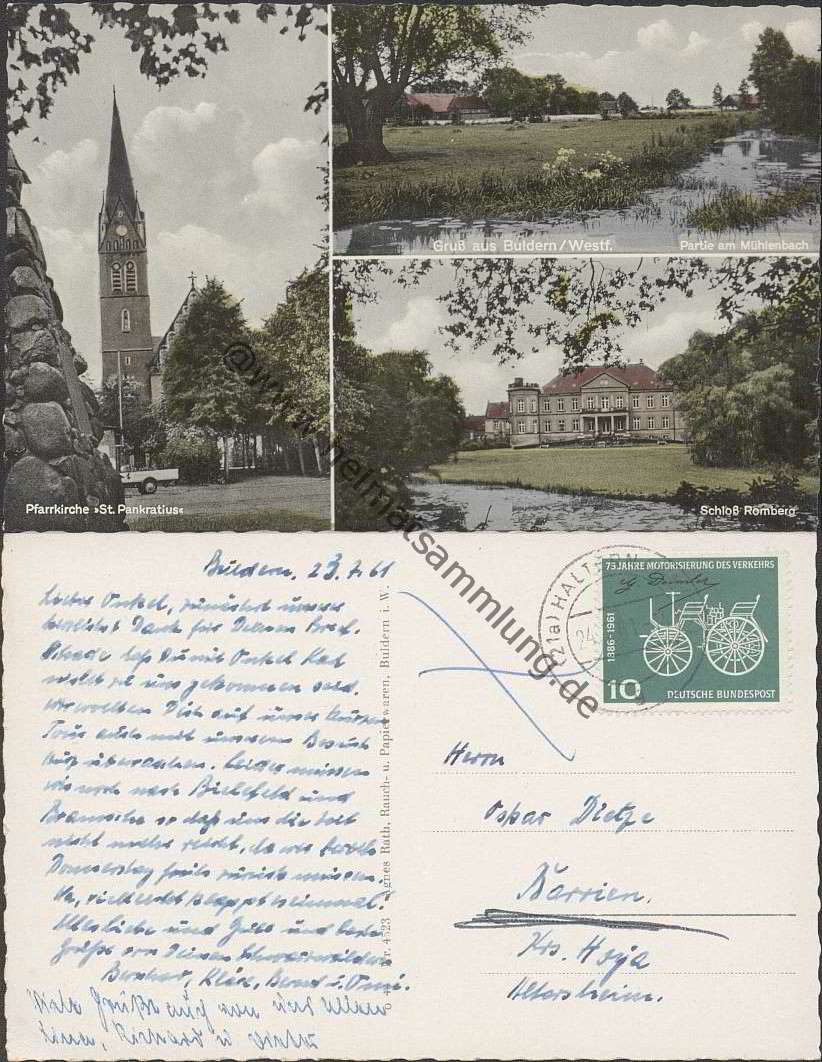 Gruß aus Buldern/Westf.
Partie am Mühlenbach
Pfarrkirche »St. Pankratius«
Schloß Romberg
@www.heimatsammlung.de
Buldern, 23.7.61
Lieber Onkel, zunächst unsere
herzlichst Dank für Deinen Brief.
Schade daß Du mit Onkel Karl
nicht zu uns gekommen seid.
Wir wollten Dich auf unser kurzen
Tour auch mit unserem Besuch
kurz überraschen. Leider müssen
wir noch nach Bielefeld und
Bramsche so daß uns die Zeit
nicht mehr reicht, da wir
Donnerstag früh zurück müssen.
Na, vielleicht klappt es einmal.
Alles Liebe und Gute und beste
Grüße von Deinen
Bernhar, Kläre, Bernd u. Omi.
Viele Grüße auch von uns allen
Richard u.
Agnes Rath, Rauch- u. Papierwaren, Buldern i. W.
Nr. 4523
75 JAHRE MOTORISIERUNG DES VERKEHRS
G. Daimler
1886-1961
10
DEUTSCHE BUNDESPOST
(21a) HALTERN
24.
Herrn
Oskar Dietze
Barrien.
Krs. Hoya
Altersheim.